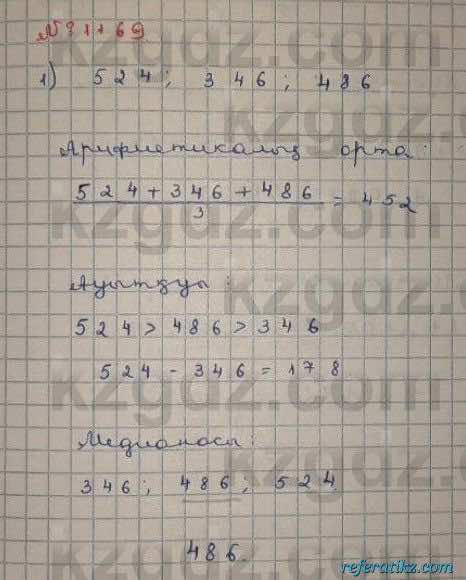 № 1169
1) 524; 346; 486
Арифметикалық орта:
524 + 346 + 486 / 3 = 452
Ауытқуы:
524 > 486 > 346
524 - 346 = 178
Медианасы:
346; 486; 524
486.
kzgdz.com
referatikz.com